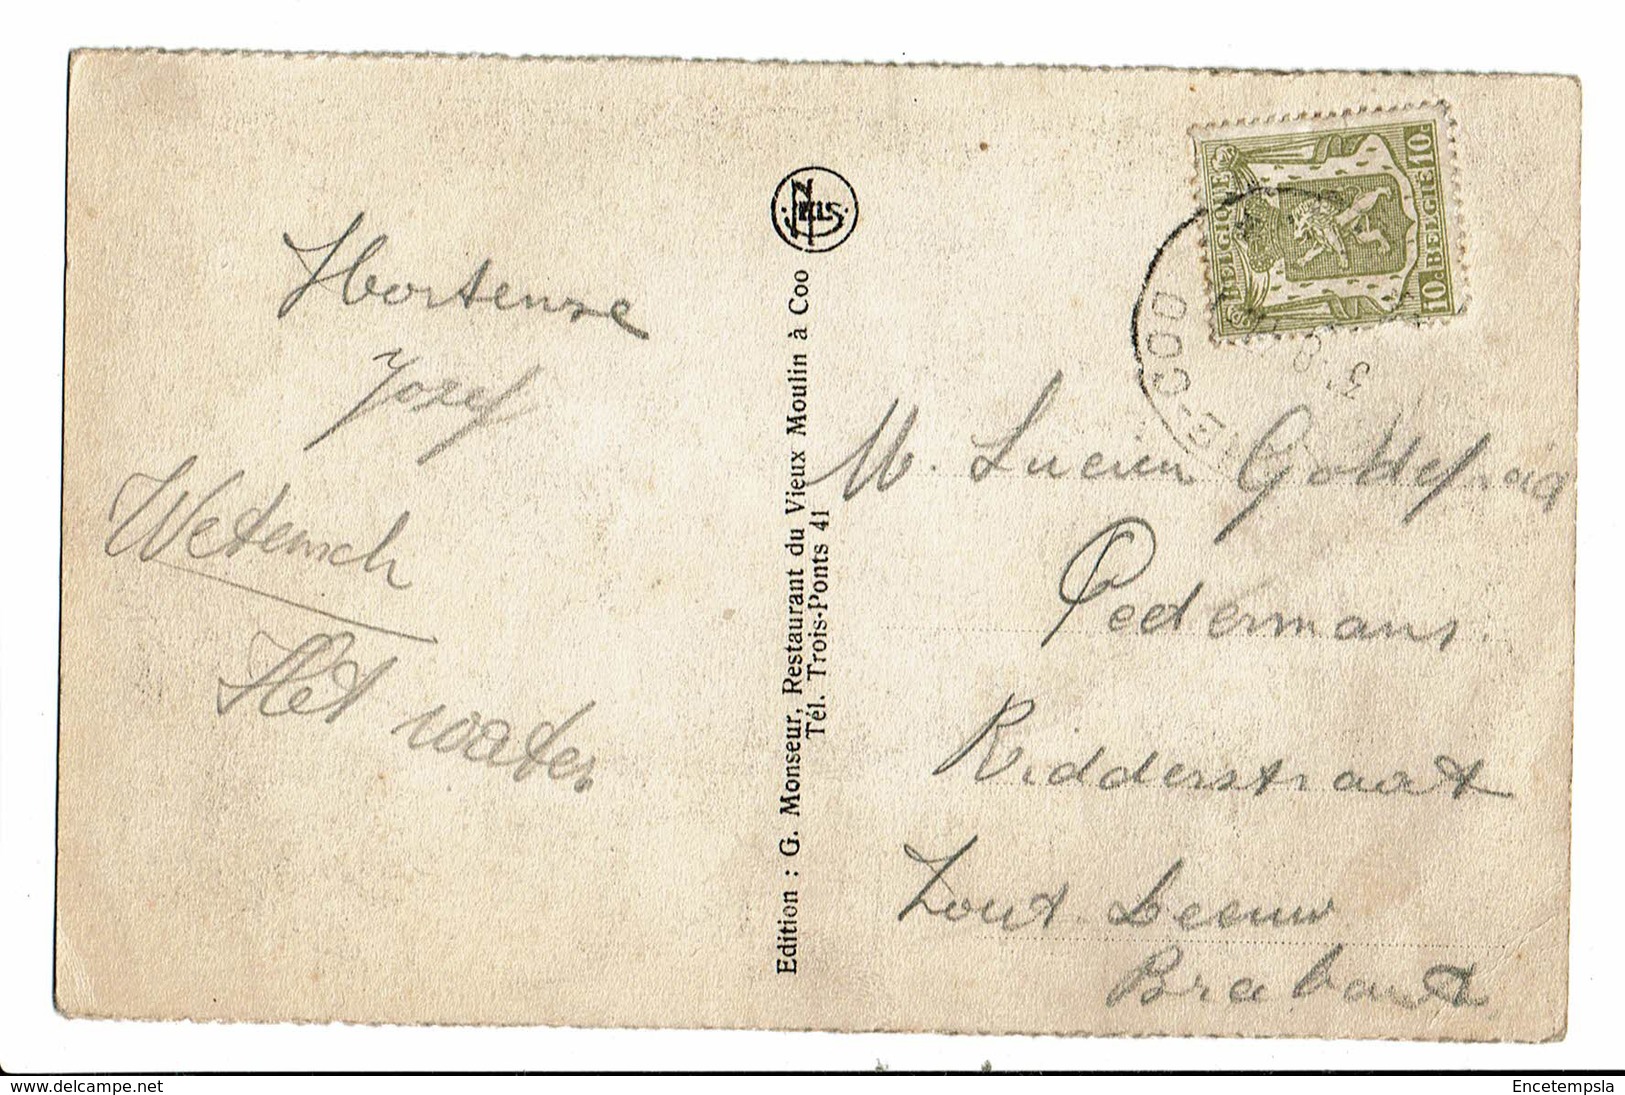 Hortense
Jozef
Wetensch
Het water
NELS
Edition : G. Monseur, Restaurant du Vieux Moulin à Coo
Tél. Trois-Ponts 41
BELGIQUE 10c
10c BELGIE
COO
M. Lucien Goddefroid
Pedermans.
Ridderstraat
Zout-Leeuw
Brabant
delcampe.net
Encetempsla